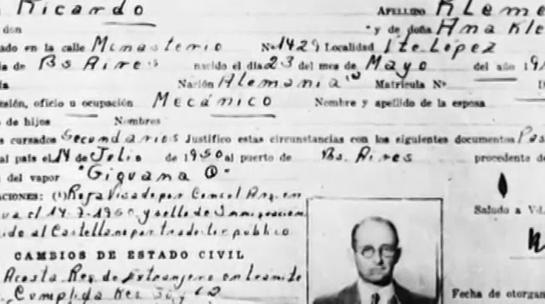 Ricardo APELLIDO Kleme
don y de doña Ana Kle
ado en la calle Minasterio No 1429 Localidad Ite. Lopez
ia de Bs Aires nacido el dia 23 del mes de Mayo del año 19
Nación Alemania Matrícula No
esión, oficio u ocupación Mecánico Nombre y apellido de la esposa
de hijos Nombres
s cursados Secundarios Justifico estas circunstancias con los siguientes documentos Pas
al país el 14 de Julio de 1950 al puerto de Bs. Aires procedente de
del vapor "Giovana C"
CIONES: (1) visado por Consul Arg. en
va el 14-7-1950 y sello de Inmigracion
ido al Castellano por traductor publico
Saludo a Vd.
CAMBIOS DE ESTADO CIVIL
Acosta Reg. de Extranjero en tramite
Cumplida Res
Fecha de otorgam